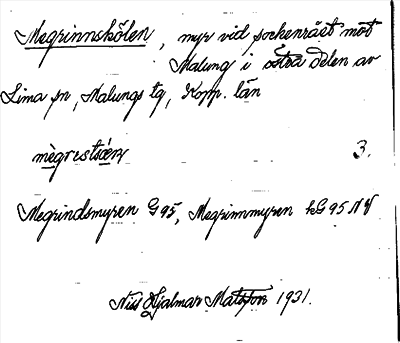 Megrinnskölen, myr vid sockenrået mot
Malung i östra delen av
Lima sn, Malungs tg, Kopp. län
3.
Megrindsmyren G95, Megrinnmyren kG95 NV
Nils Hjalmar Matsson 1931.